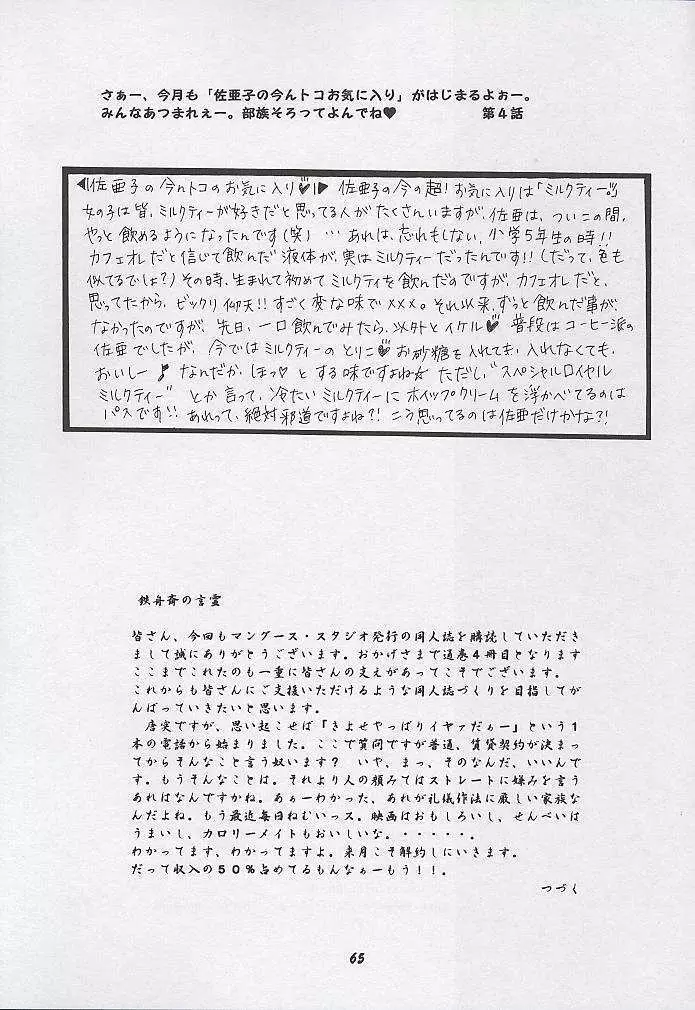 さぁー、今月も「佐亜子の今んトコお気に入り」がはじまるよぉー。
みんなあつまれぇー。部族そろってよんでね♥ 第4話
佐亜子の今んトコのお気に入り♥ 佐亜子の今の超!お気に入りは「ミルクティー」。
女の子は皆、ミルクティーが好きだと思ってる人がたくさんいますが、佐亜は、ついこの間、
やっと飲めるようになったんです(笑) …あれは、忘れもしない、小学5年生の時!!
カフェオレだと信じて飲んだ液体が、実はミルクティーだったんです!!(だって、色も
似てるでしょ?)その時、生まれて初めてミルクティを飲んだのですが、カフェオレだと、
思ってたから、ビックリ仰天!!すごく変な味で×××。それ以来、ずっと飲んだ事が、
なかったのですが、先日、一口飲んでみたら、以外とイケル♥ 普段はコーヒー派の
佐亜でしたが、今ではミルクティーのとりこ♥ お砂糖を入れても、入れなくても、
おいしー♪ なんだか、ほっ♡とする味ですよね☆ ただし、“スペシャルロイヤル
ミルクティー”とか言って、冷たいミルクティーにホイップクリームを浮かべてるのは
パスです!!あれって、絶対邪道ですよね?!こう思ってるのは佐亜だけかな?!
鉄舟斎の言霊
皆さん、今回もマングース・スタジオ発行の同人誌を購読していただき
まして誠にありがとうございます。おかげさまで通巻4冊目となります
ここまでこれたのも一重に皆さんの支えがあってこそでございます。
これからも皆さんにご支援いただけるような同人誌づくりを目指してが
んばっていきたいと思います。
唐突ですが、思い起こせば「きよせやっぱりイヤァだぁー」という1
本の電話から始まりました。ここで質問ですが普通、賃貸契約が決まっ
てからそんなこと言う奴います? いや、まっ、そのなんだ、いいんで
す。もうそんなことは。それより人の顔みてはストレートに嫌みを言う
あれはなんですかね。あぁーわかった、あれが礼儀作法に厳しい家族な
んだよね。もう最近毎日ねむいっス。映画はおもしろいし、せんべいは
うまいし、カロリーメイトもおいしいな。・・・・・。
わかってます、わかってますよ。来月こそ解約しにいきます。
だって収入の50%占めてるもんなぁーもう!!。
つづく
65